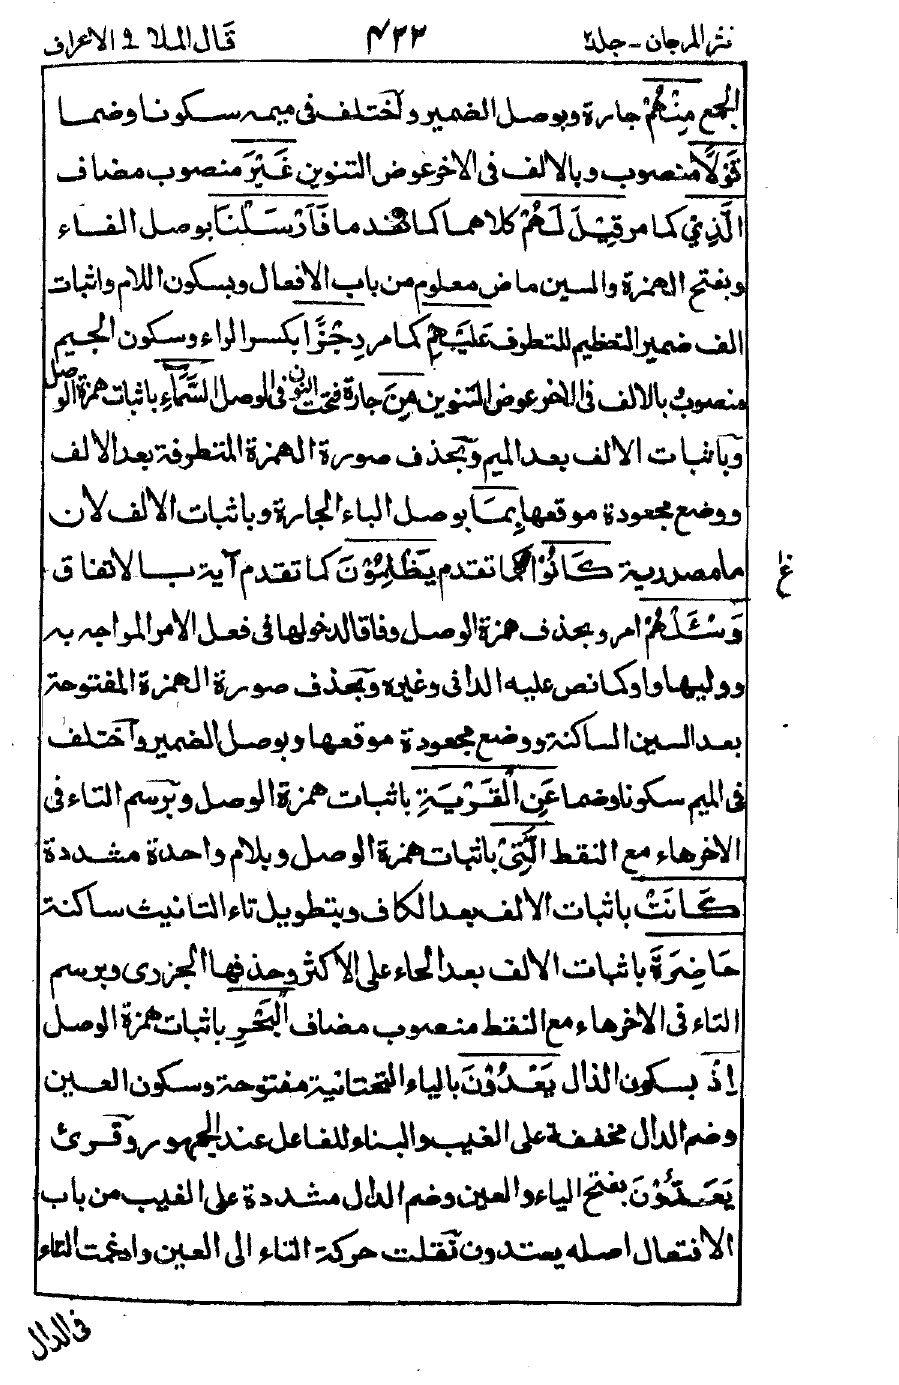 نثر المرجان - جلد٢
٤٢٢
قال الملا ٩ الاعراف
الجمع مِنْهُمْ جارة وبوصل الضمير وآختلف فى ميمه سكونا وضما
قَوْلًا منصوب وبالالف فى الاخر عوض التنوين غَيْرَ منصوب مضاف
الَّذِيْ كما مر قِيْلَ لَهُمْ كلاهما كما تقدما فَاَرْسَلْنَا بوصل الفاء
وبفتح الهمزة والسين ماض معلوم من باب الافعال وبسكون اللام واثبات
الف ضمير التعظيم للتطرف عَلَيْهِمْ كما مر رِجْزًا بكسر الراء وسكون الجيم
منصوب بالالف فى الاخر عوض التنوين مِنَ جارة فتحت النون فى الوصل السَّمَاءِ باثبات همزة الوصل
وبآثبات الالف بعد الميم وبحذف صورة الهمزة المتطرفة بعد الالف
ووضع مجعودة موقعها بِمَا بوصل الباء الجارة وباثبات الالف لان
ما مصدرية كَانُوْا كما تقدم يَظْلِمُوْنَ كما تقدم آية بالاتفاق
ع
وَسْئَلْهُمْ امر وبحذف همزة الوصل وفاقا لدخولها فى فعل الامر المواجه به
ووليها واو كما نص عليه الدانى وغيره وبحذف صورة الهمزة المفتوحة
بعد السين الساكنة ووضع مجعودة موقعها وبوصل الضمير وآختلف
فى الميم سكونا وضما عَنِ الْقَرْيَةِ باثبات همزة الوصل وبرسم التاء فى
الاخر هاء مع النقط الَّتِىْ باثبات همزة الوصل وبلام واحدة مشددة
كَانَتْ باثبات الالف بعد الكاف وبتطويل تاء التانيث ساكنة
حَاضِرَةَ باثبات الالف بعد الحاء على الاكثر وحذفها الجزرى وبرسم
التاء فى الاخر هاء مع النقط منصوب مضاف الْبَحْرِ باثبات همزة الوصل
اِذْ بسكون الذال يَعْدُوْنَ بالياء التحتانية مفتوحة وسكون العين
وضم الدال مخففة على الغيب والبناء للفاعل عند الجمهور وقرئ
يَعَدُّوْنَ بفتح الياء والعين وضم الدال مشددة على الغيب من باب
الافتعال اصله يعتدون نقلت حركة التاء الى العين وادغمت التاء
فى الدال